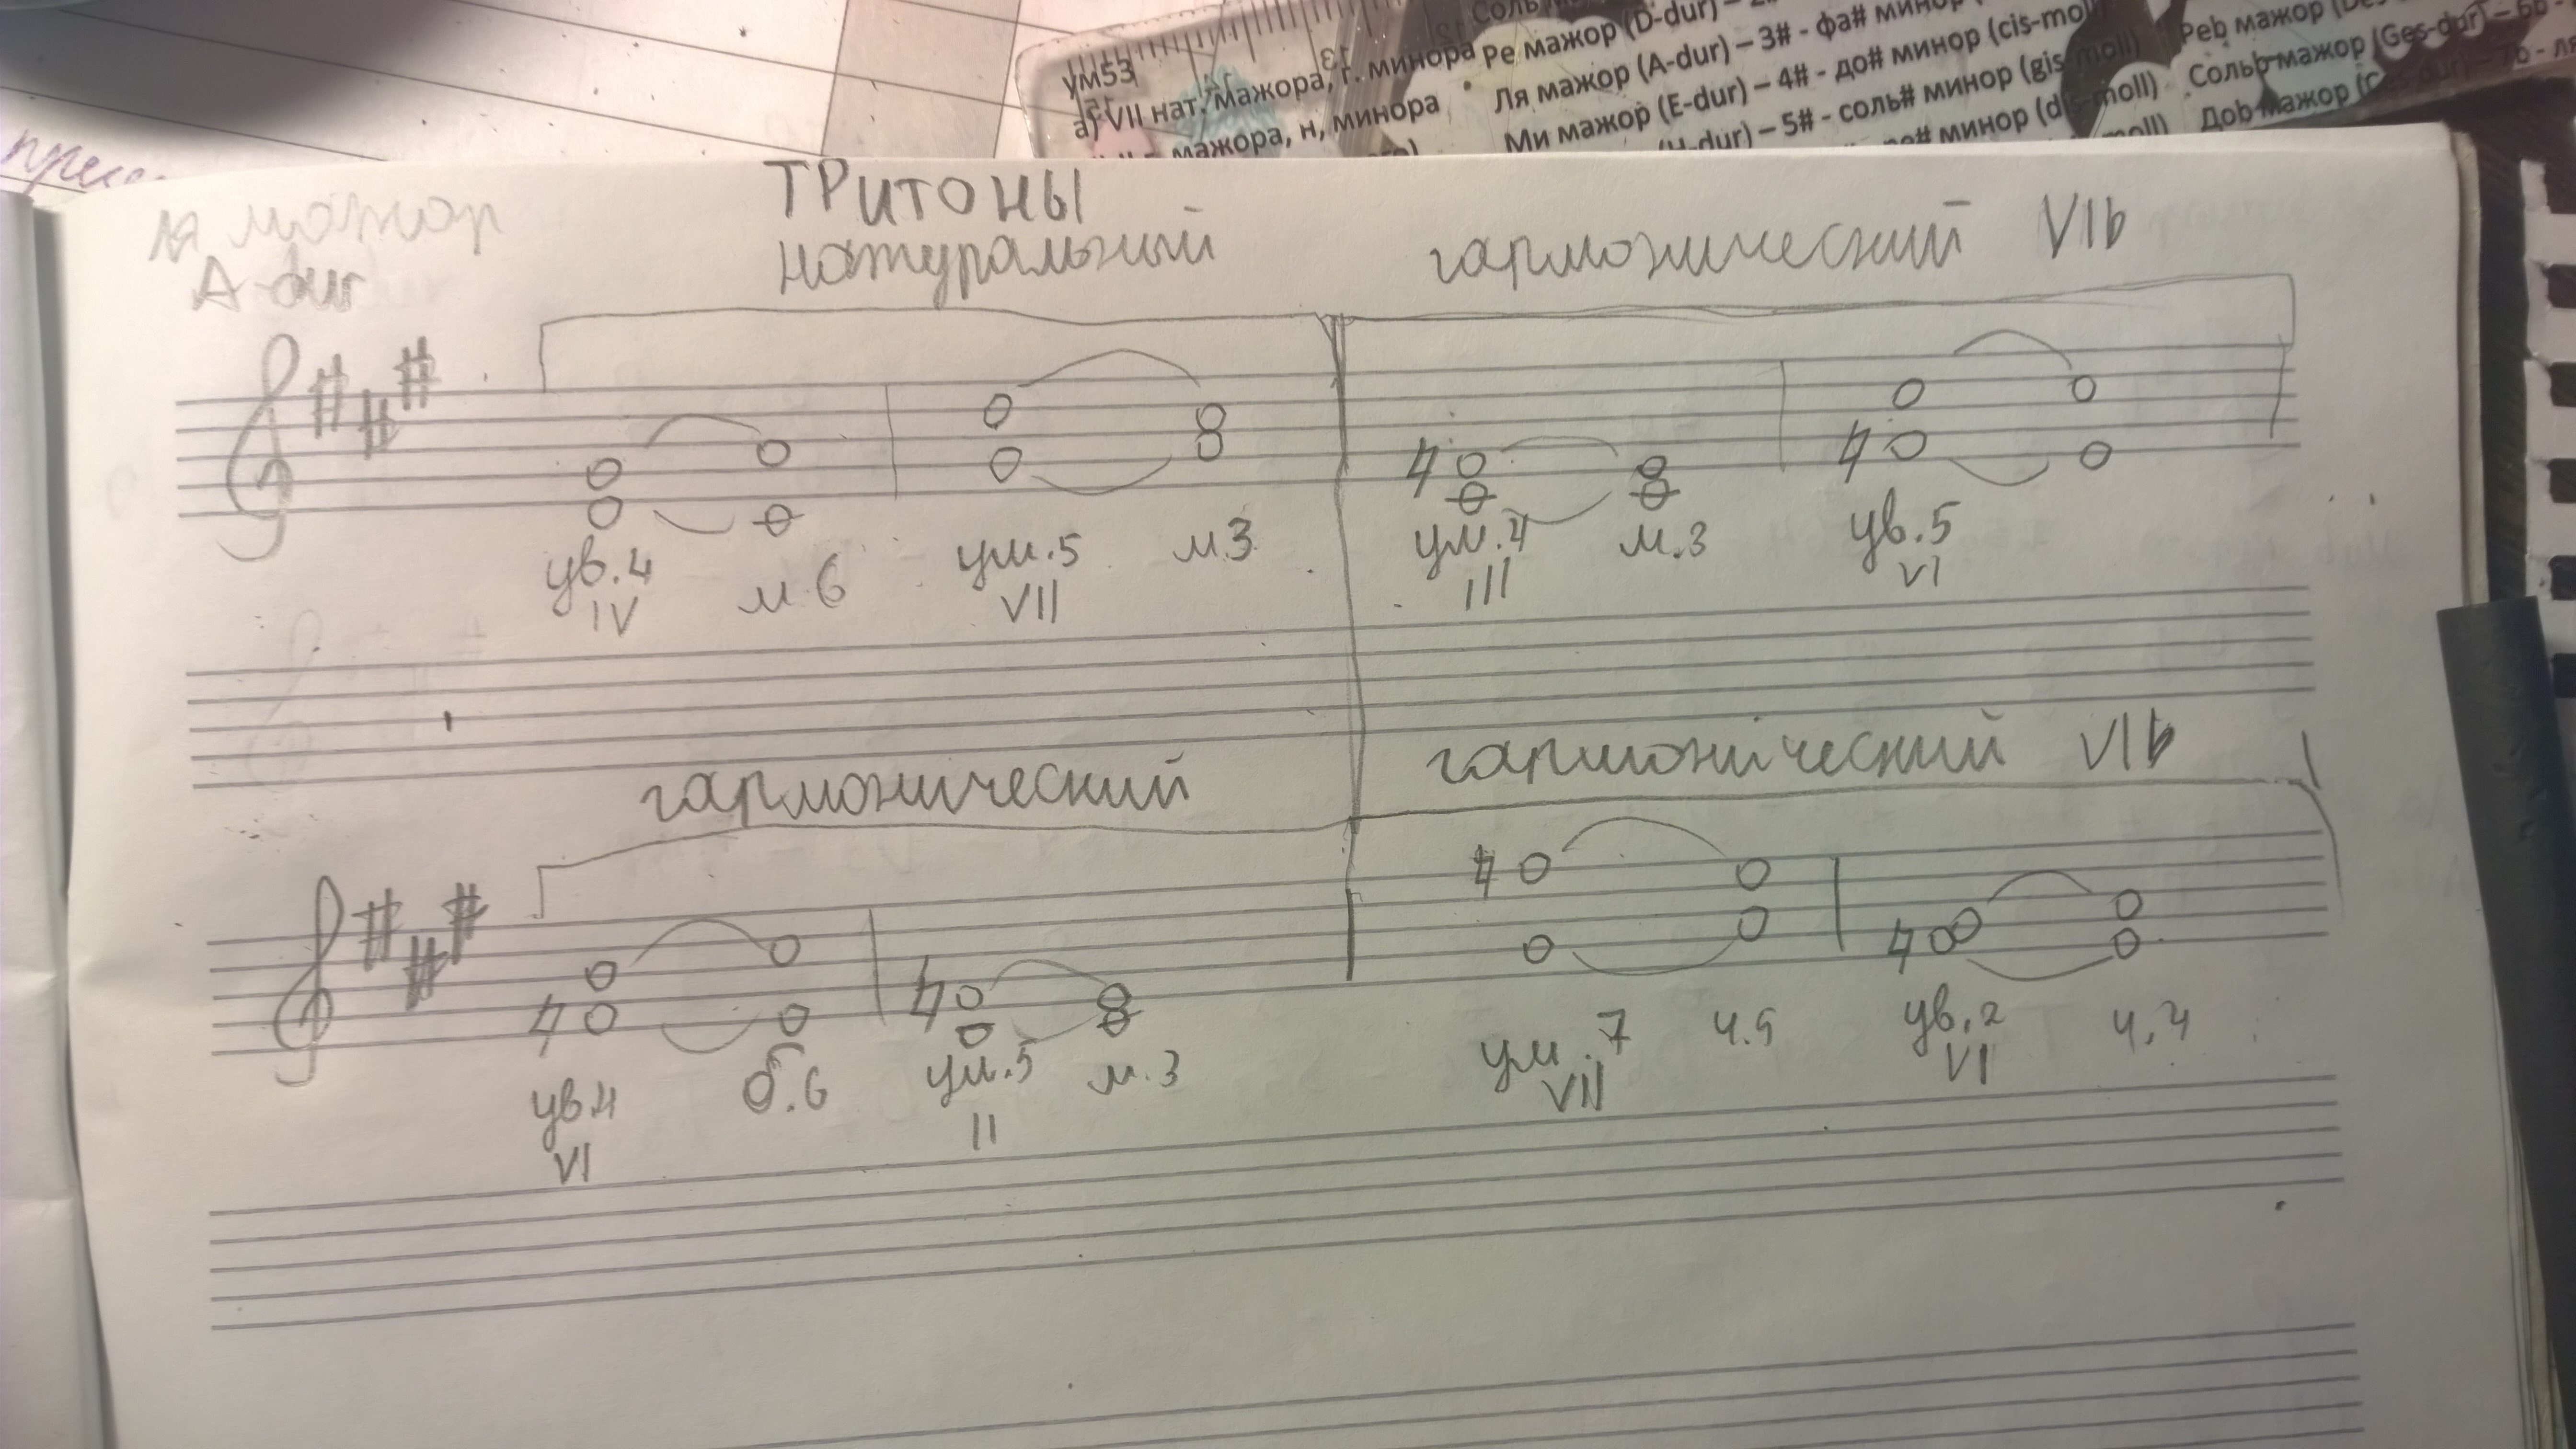 Соль
ум53
а) VII нат. мажора, г. минора
мажора, н, минора
Ре мажор (D-dur) –
Ля мажор (A-dur) – 3# - фа# минор
Ми мажор (E-dur) – 4# - до# минор (cis-moll)
(H-dur) – 5# - соль# минор (gis-moll)
минор (dis-moll)
moll)
Реb мажор
Сольb мажор (Ges-dur) – 6b -
Доb мажор
7b - ля
ТРИТОНЫ
ля мажор
A-dur
натуральный
гармонический VIb
ув.4 м.6 ум.5 м.3 ум.4 м.3 ув.5
IV VII III VI
гармонический
гармонический VIb
ув.4 б.6 ум.5 м.3 ум.7 ч.5 ув.2 ч.4
VI II VII VI